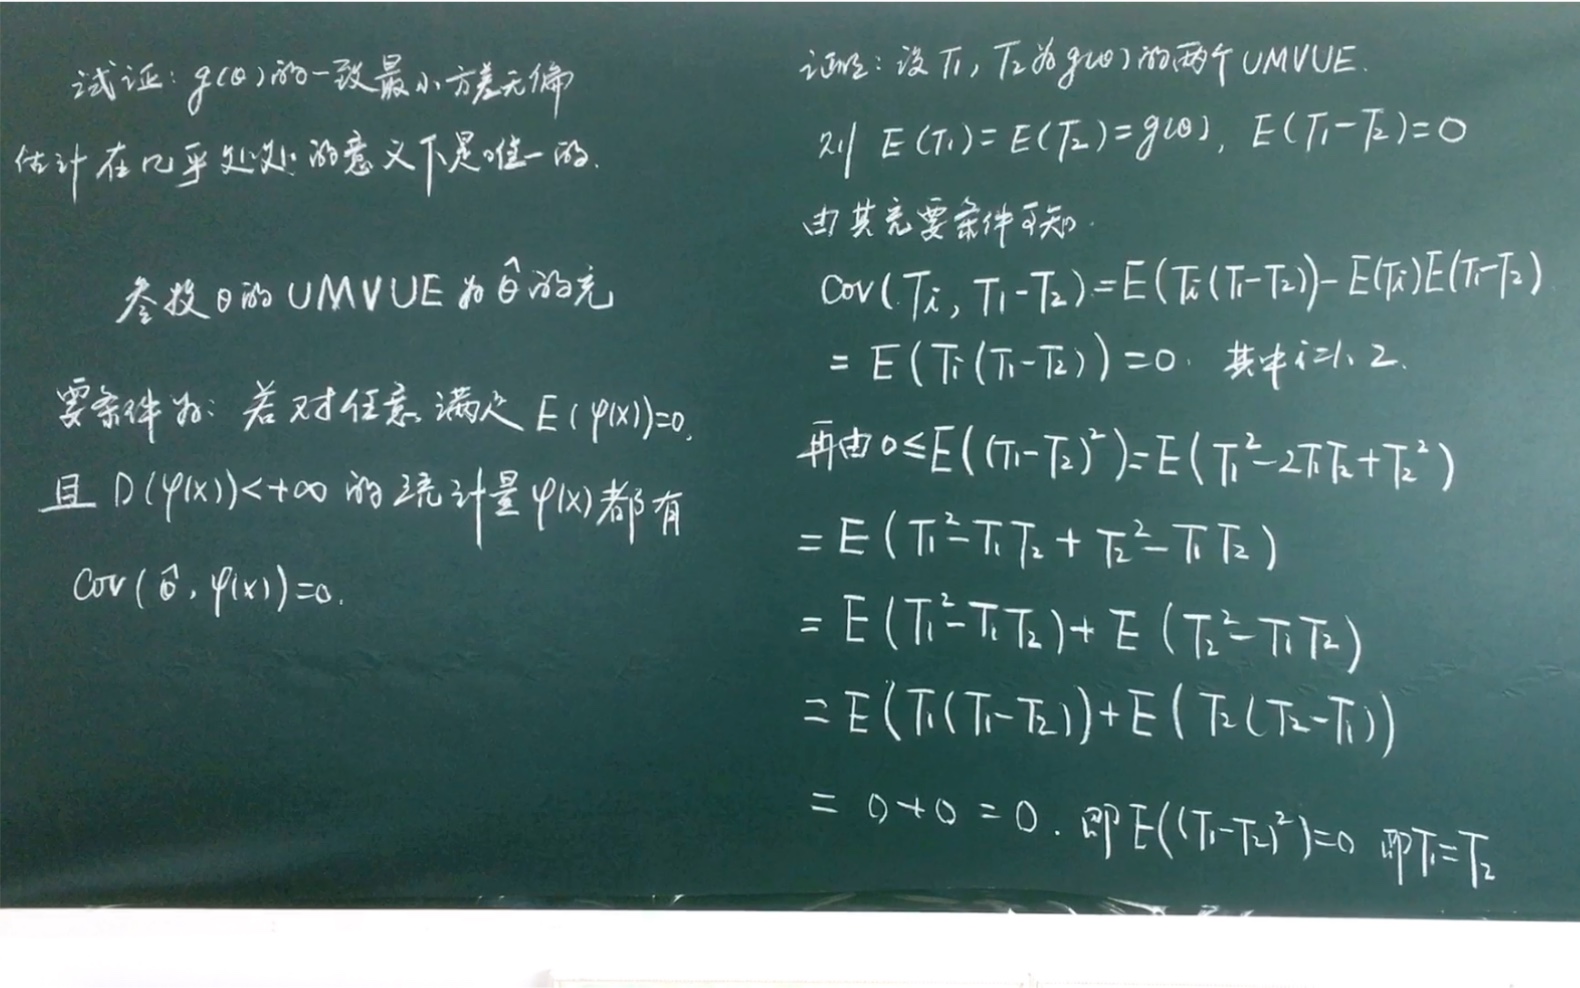 试证: g(θ)的一致最小方差无偏
估计在几乎处处的意义下是唯一的.
参数θ的UMVUE为θ̂的充
要条件为: 若对任意满足E(φ(x))=0,
且D(φ(x))<+∞的统计量φ(x)都有
Cov(θ̂, φ(x))=0.
证明: 设T₁, T₂为g(θ)的两个UMVUE.
则 E(T₁)=E(T₂)=g(θ), E(T₁-T₂)=0
由其充要条件可知.
Cov(Tᵢ, T₁-T₂)=E(Tᵢ(T₁-T₂))-E(Tᵢ)E(T₁-T₂)
=E(Tᵢ(T₁-T₂))=0. 其中i=1、2.
再由0≤E((T₁-T₂)²)=E(T₁²-2T₁T₂+T₂²)
=E(T₁²-T₁T₂+T₂²-T₁T₂)
=E(T₁²-T₁T₂)+E(T₂²-T₁T₂)
=E(T₁(T₁-T₂))+E(T₂(T₂-T₁))
=0+0=0. 即E((T₁-T₂)²)=0 即T₁=T₂